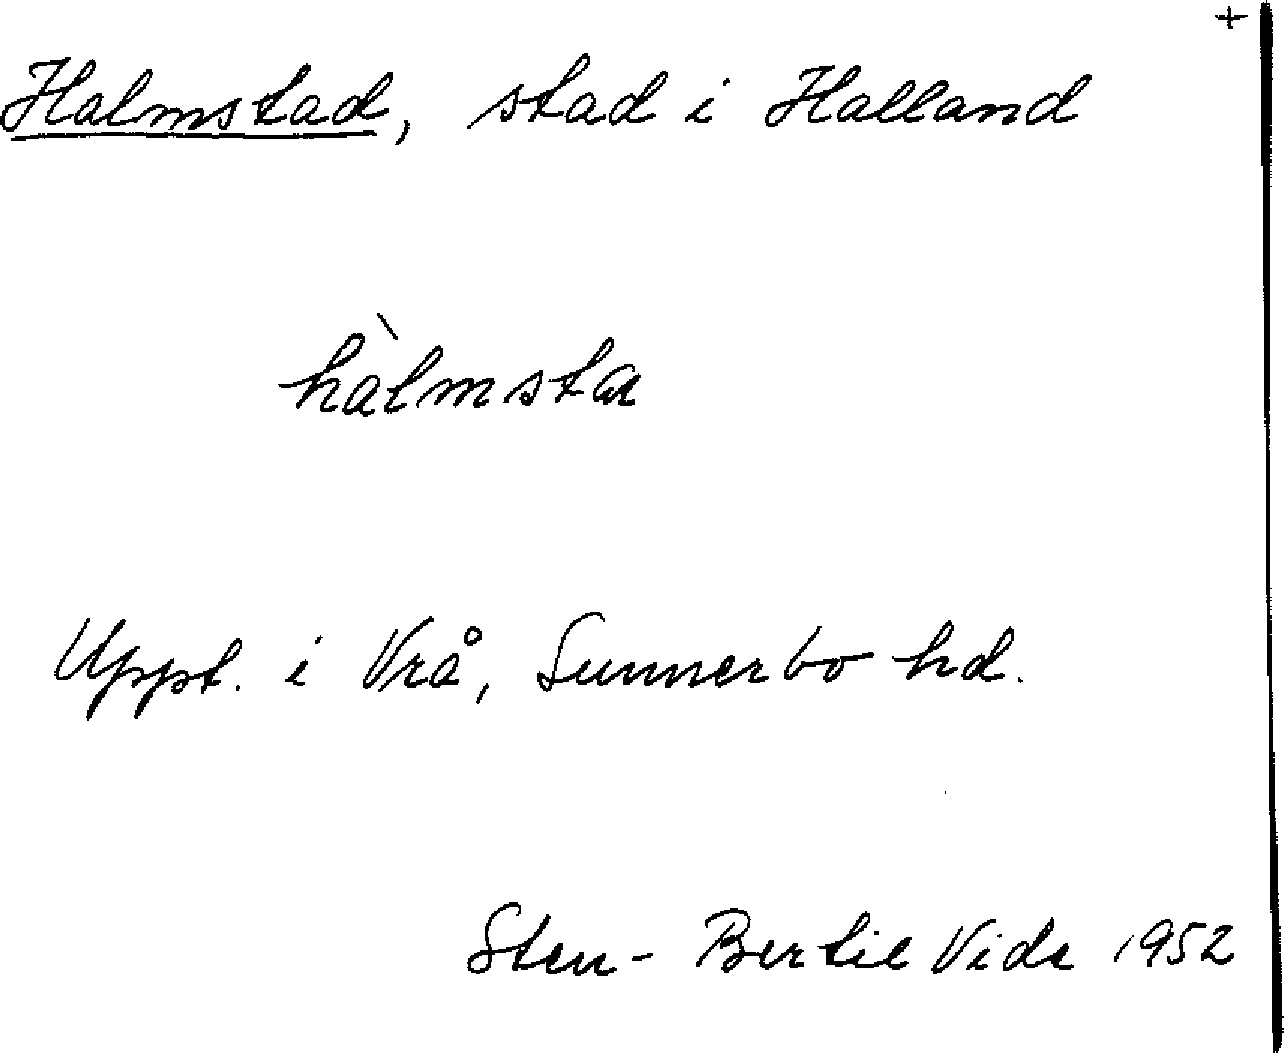 +
Halmstad, stad i Halland
hàlmsta
Uppt. i Vrå, Sunnerbo hd.
Sten-Bertil Vide 1952